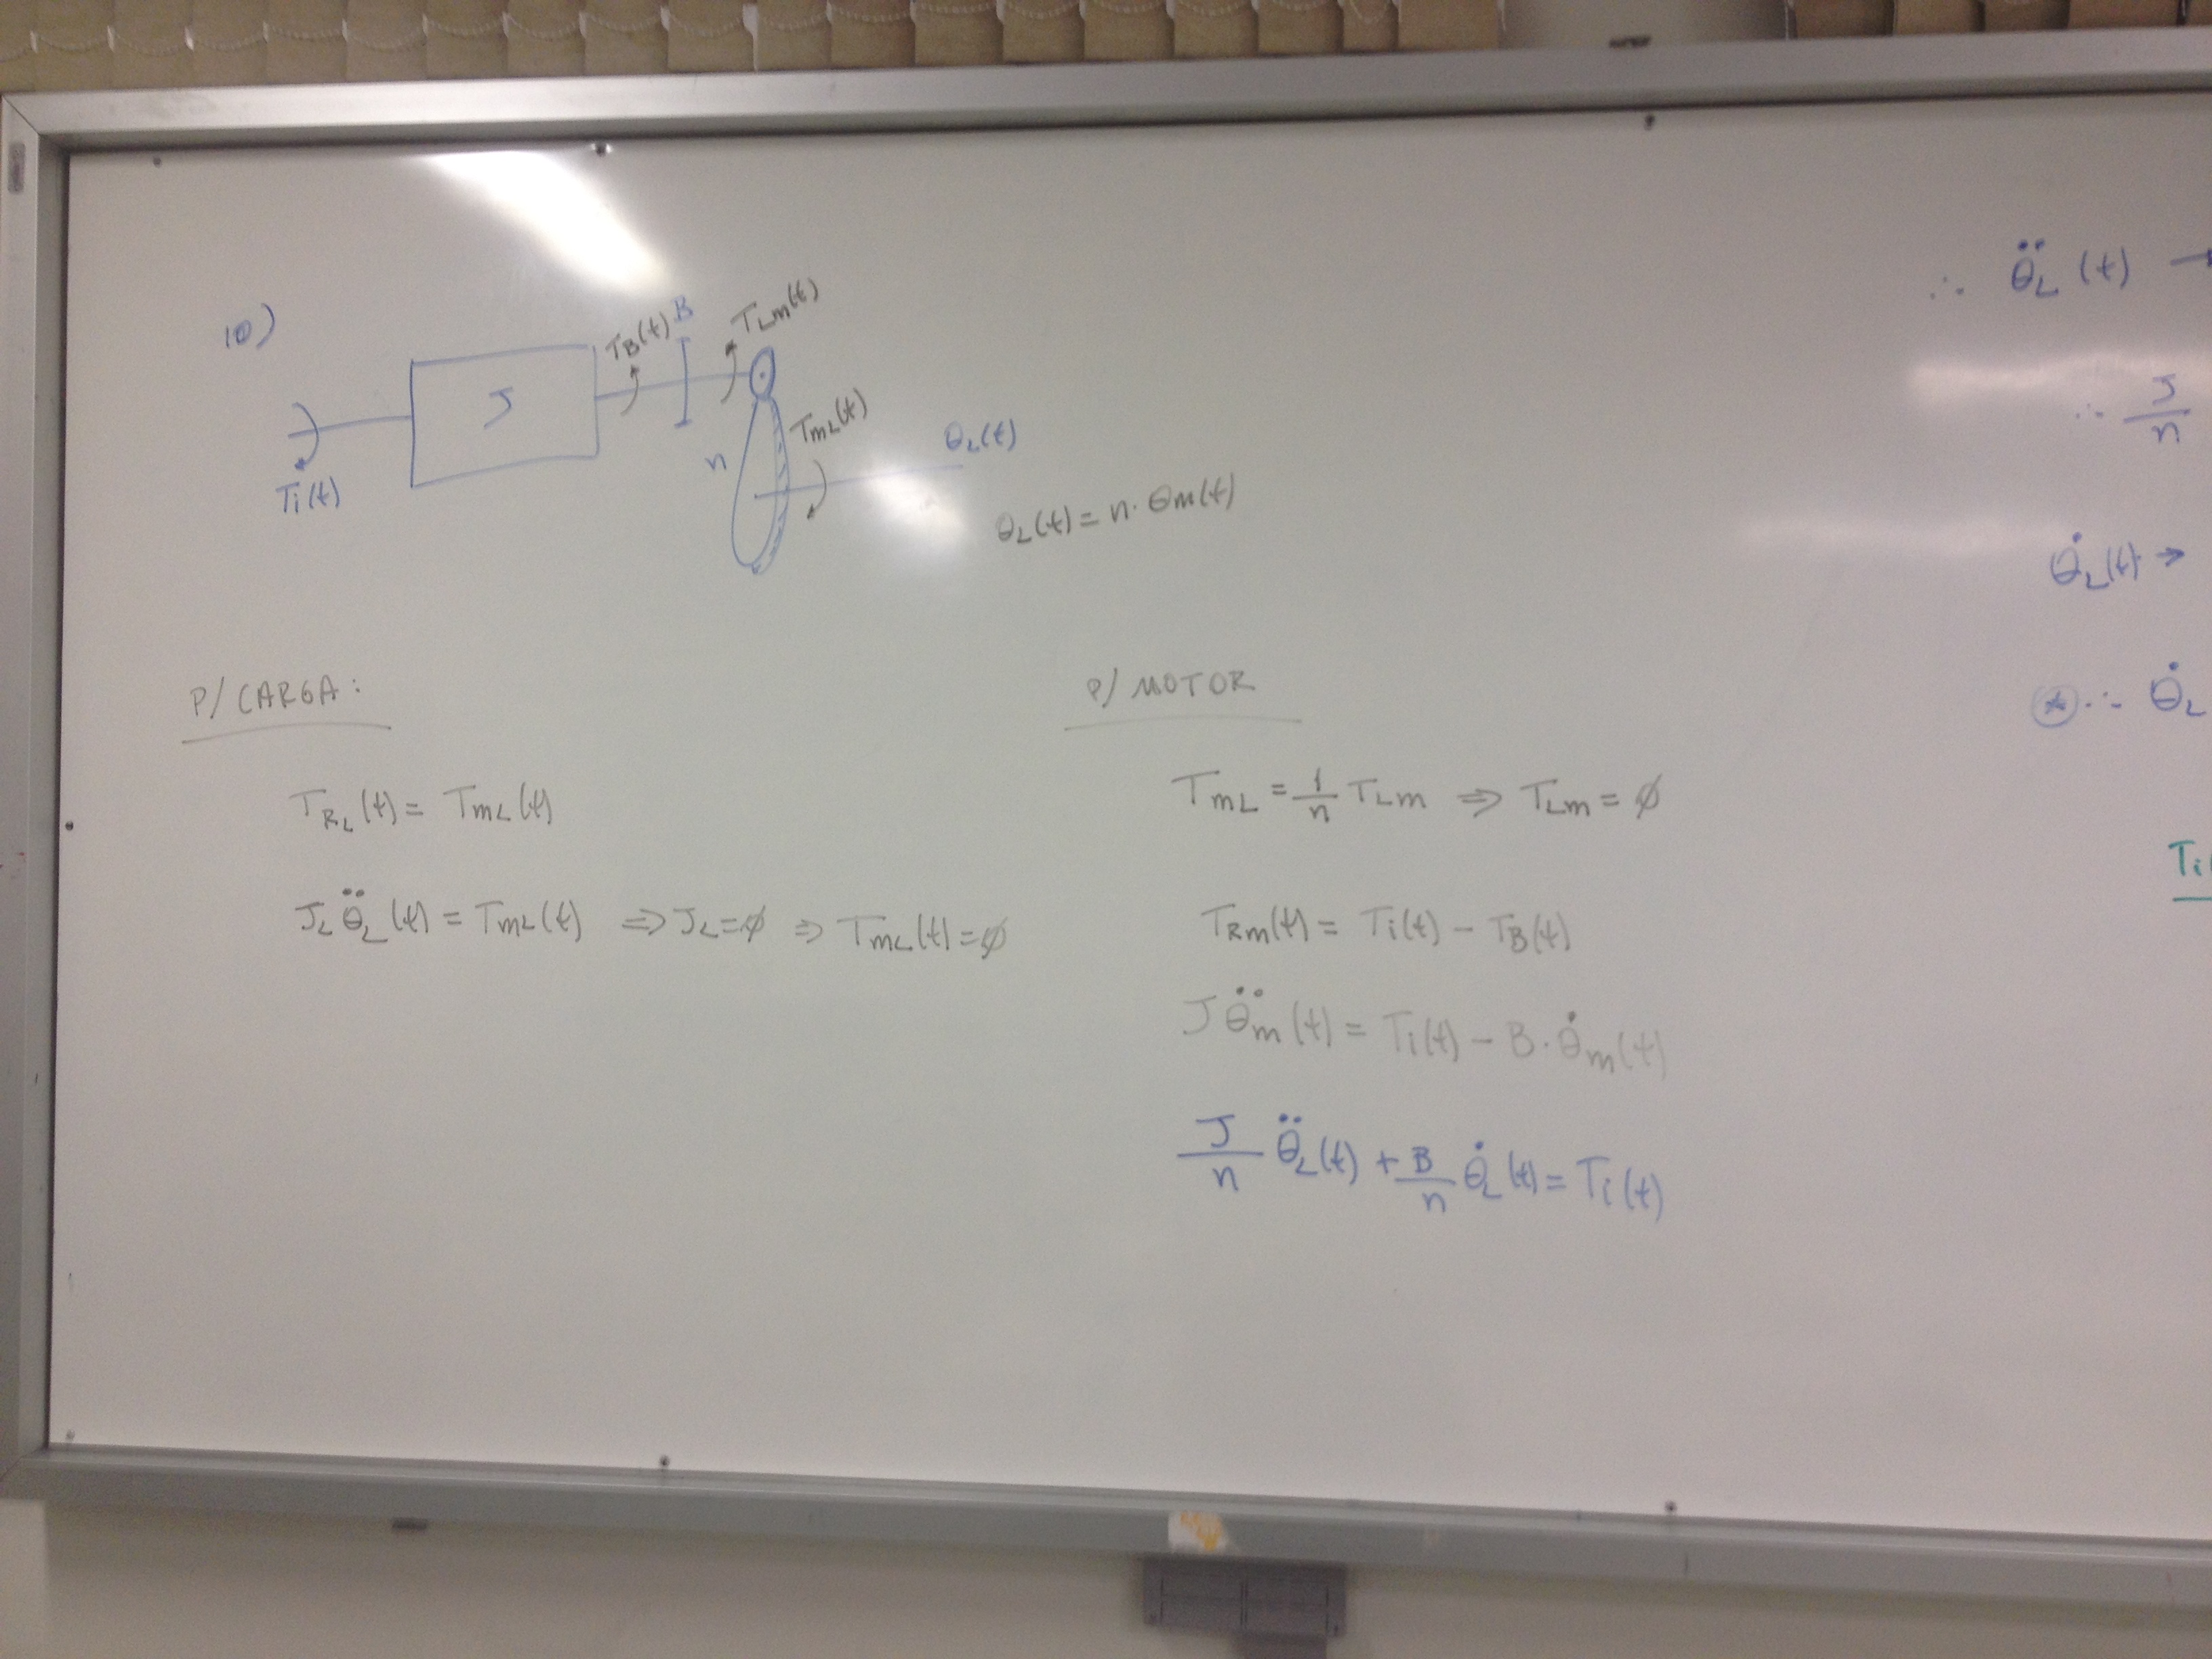 10)
Ti(t)
J
TB(t)
B
TLm(t)
n
TmL(t)
θL(t)
θL(t) = n· θm(t)
P/ CARGA:
TRL(t) = TmL(t)
JL θ̈L(t) = TmL(t) ⇒ JL=∅ ⇒ TmL(t)=∅
P/ MOTOR
TmL = 1/n TLm ⇒ TLm = ∅
TRm(t) = Ti(t) - TB(t)
J θ̈m(t) = Ti(t) - B· θ̇m(t)
J/n θ̈L(t) + B/n θ̇L(t) = Ti(t)
∴ θ̈L(t) →
∴ J/n
θ̇L(t) →
* ∴ θ̇L
Ti(